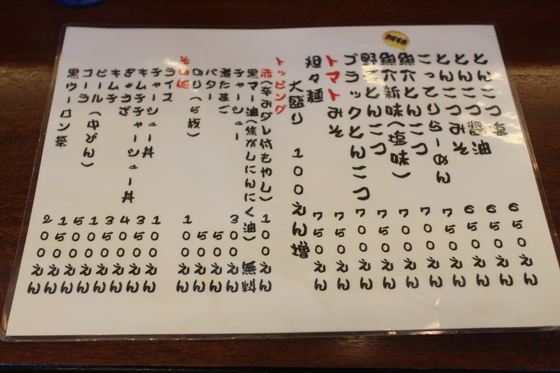 とんこつ塩 650えん
とんこつ醤油 650えん
とんこつみそ 650えん
こってりらーめん 750えん
魚介とんこつ 700えん
魚介新味(塩味) 700えん
野菜とんこつ 700えん
ブラックとんこつ 750えん
トマトみそ 750えん
坦々麺 750えん
大盛り 100えん増
トッピング
(辛みダレ付もやし) 100えん
黒マー油(焦がしにんにく油) 無料
チャーシュー 300えん
煮たまご 50えん
バター 50えん
のり(5枚) 100えん
その他
ライス 100えん
チャーシュー丼 350えん
キムチチャーシュー丼 400えん
ぎょうざ 300えん
キムチ 150えん
ビール(中びん) 500えん
コーラ 150えん
黒ウーロン茶 200えん